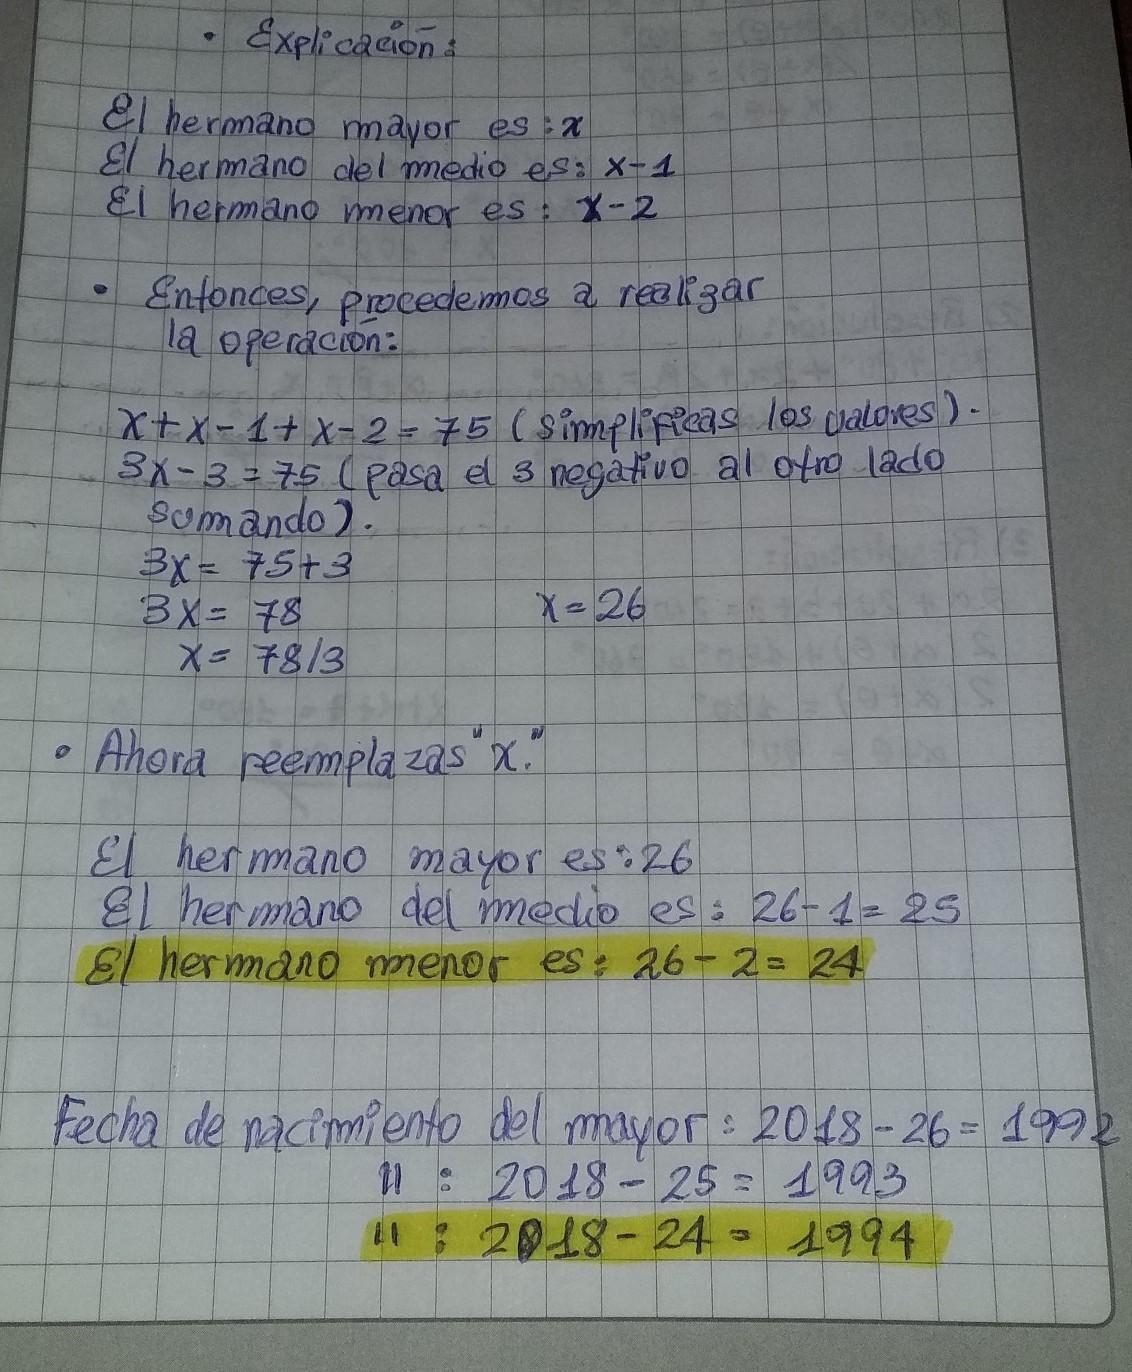 • Explicación:
El hermano mayor es: x
El hermano del medio es: x-1
El hermano menor es: x-2
• Entonces, procedemos a realizar
la operación:
x+x-1+x-2=75 (simplificas los valores).
3x-3=75 (pasa el 3 negativo al otro lado
sumando).
3x= 75+3
3x= 78 x=26
x= 78/3
• Ahora reemplazas "x."
El hermano mayor es: 26
El hermano del medio es: 26-1= 25
El hermano menor es: 26-2= 24
Fecha de nacimiento del mayor: 2018-26= 1992
11 : 2018-25= 1993
11 : 2018-24= 1994